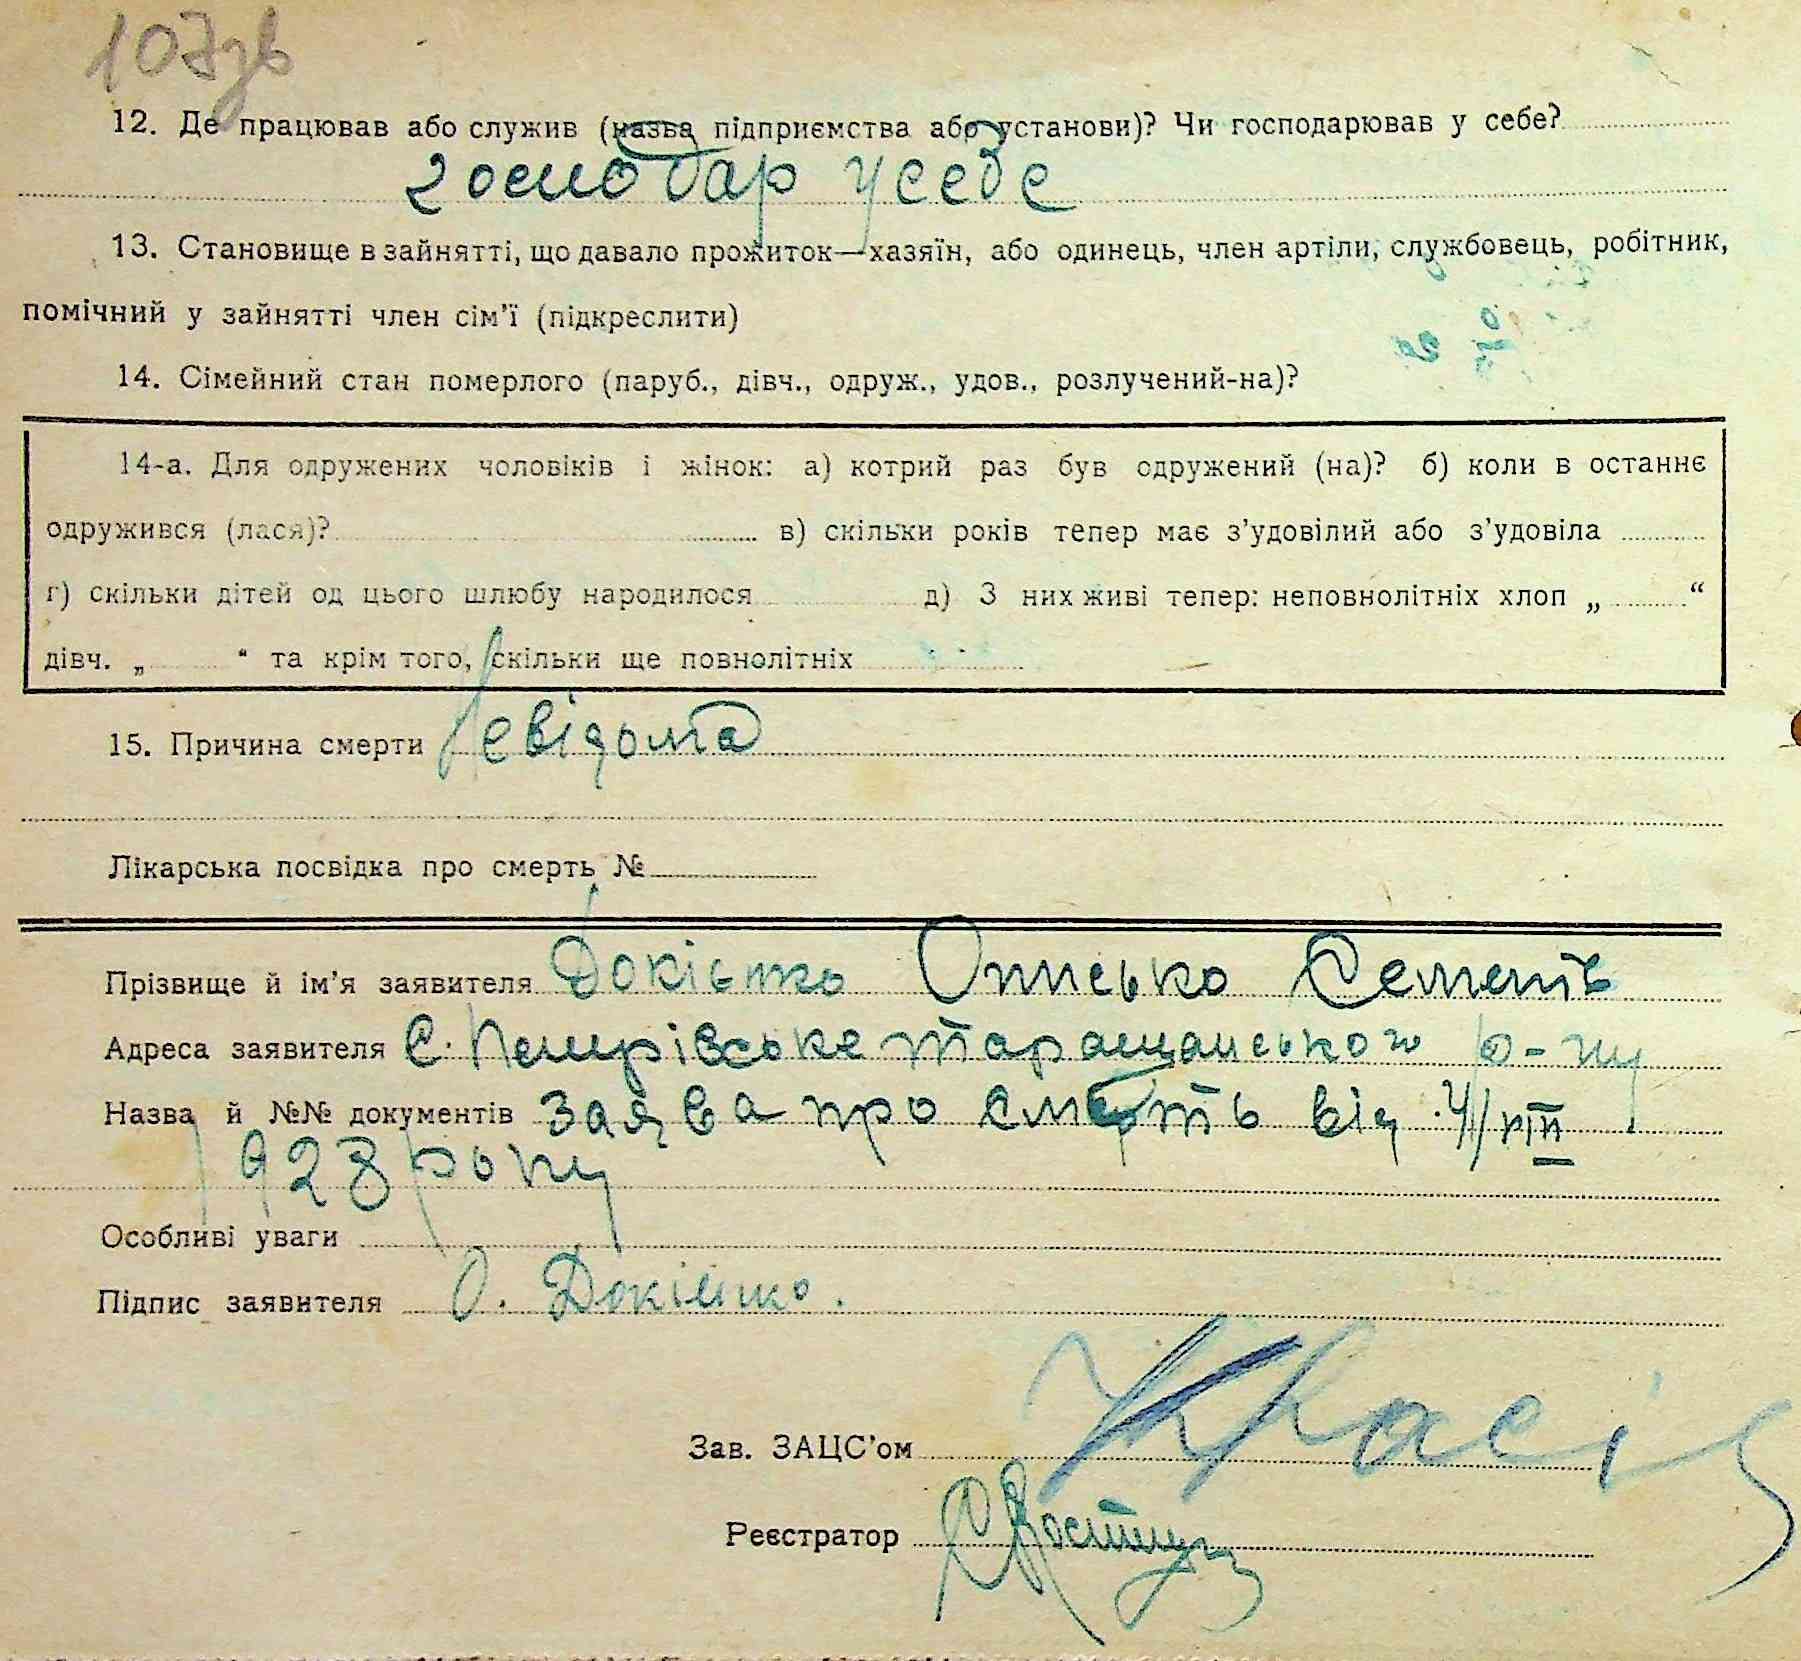 107зв
12. Де працював або служив (назва підприємства або установи)? Чи господарював у себе?
господар у себе
13. Становище в зайнятті, що давало прожиток—хазяїн, або одинець, член артіли, службовець, робітник,
помічний у зайнятті член сім'ї (підкреслити)
14. Сімейний стан померлого (паруб., дівч., одруж., удов., розлучений-на)?
14-а. Для одружених чоловіків і жінок: а) котрий раз був одружений (на)? б) коли в останнє
одружився (лася)? в) скільки років тепер має з'удовілий або з'удовіла
г) скільки дітей од цього шлюбу народилося д) З них живі тепер: неповнолітніх хлоп „ “
дівч. „ “ та крім того, скільки ще повнолітніх
15. Причина смерти Невідома
Лікарська посвідка про смерть №
Прізвище й ім'я заявителя Докієнко Описько Семенів
Адреса заявителя С. Петрівське Таращанського р-ну
Назва й №№ документів Заява про смерть від 4/VIII
1928 року
Особливі уваги
Підпис заявителя О. Докієнко.
Зав. ЗАЦС'ом
Реєстратор